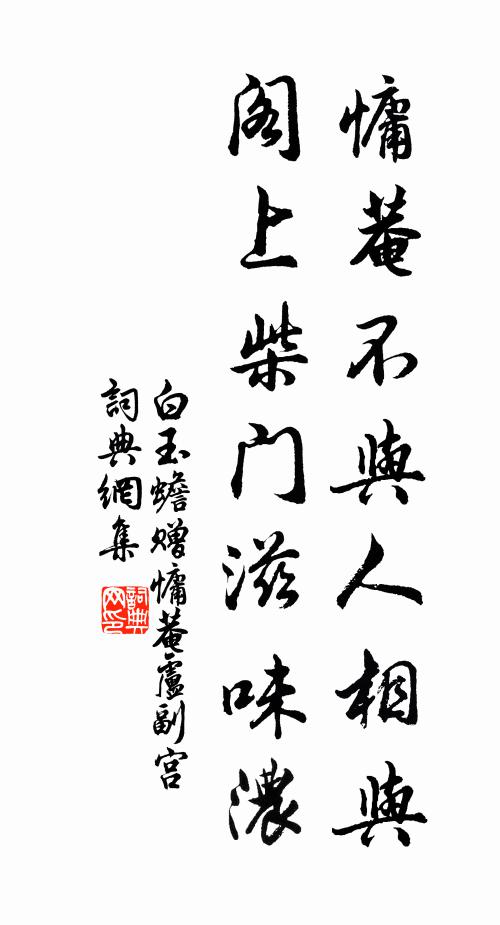 慵菴不與人相與
閣上柴門滋味濃
白玉蟾贈慵菴盧副宮
詞典網集
詞典网印